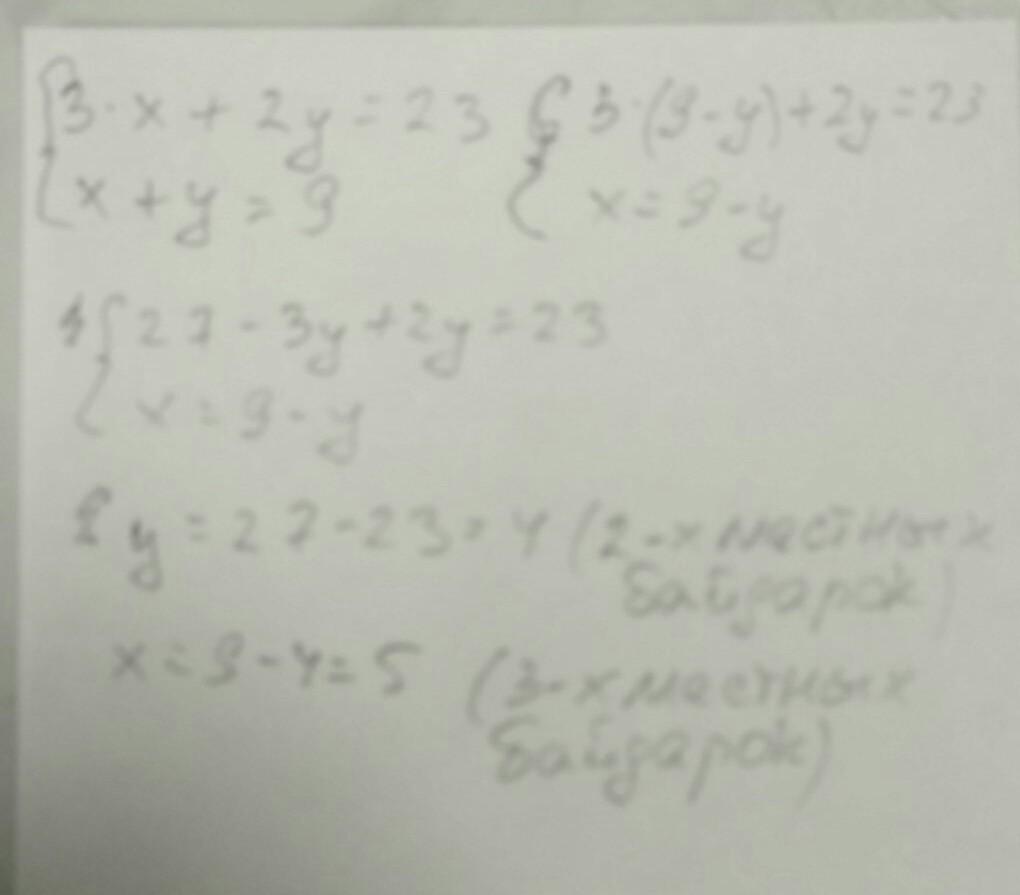 {3·x + 2y = 23 { 3·(9-y)+2y=23
{x + y = 9 { x=9-y
{27-3y+2y=23
{x=9-y
y=27-23=4 (2-х местных
байдарок)
x=9-4=5 (3-х местных
байдарок)